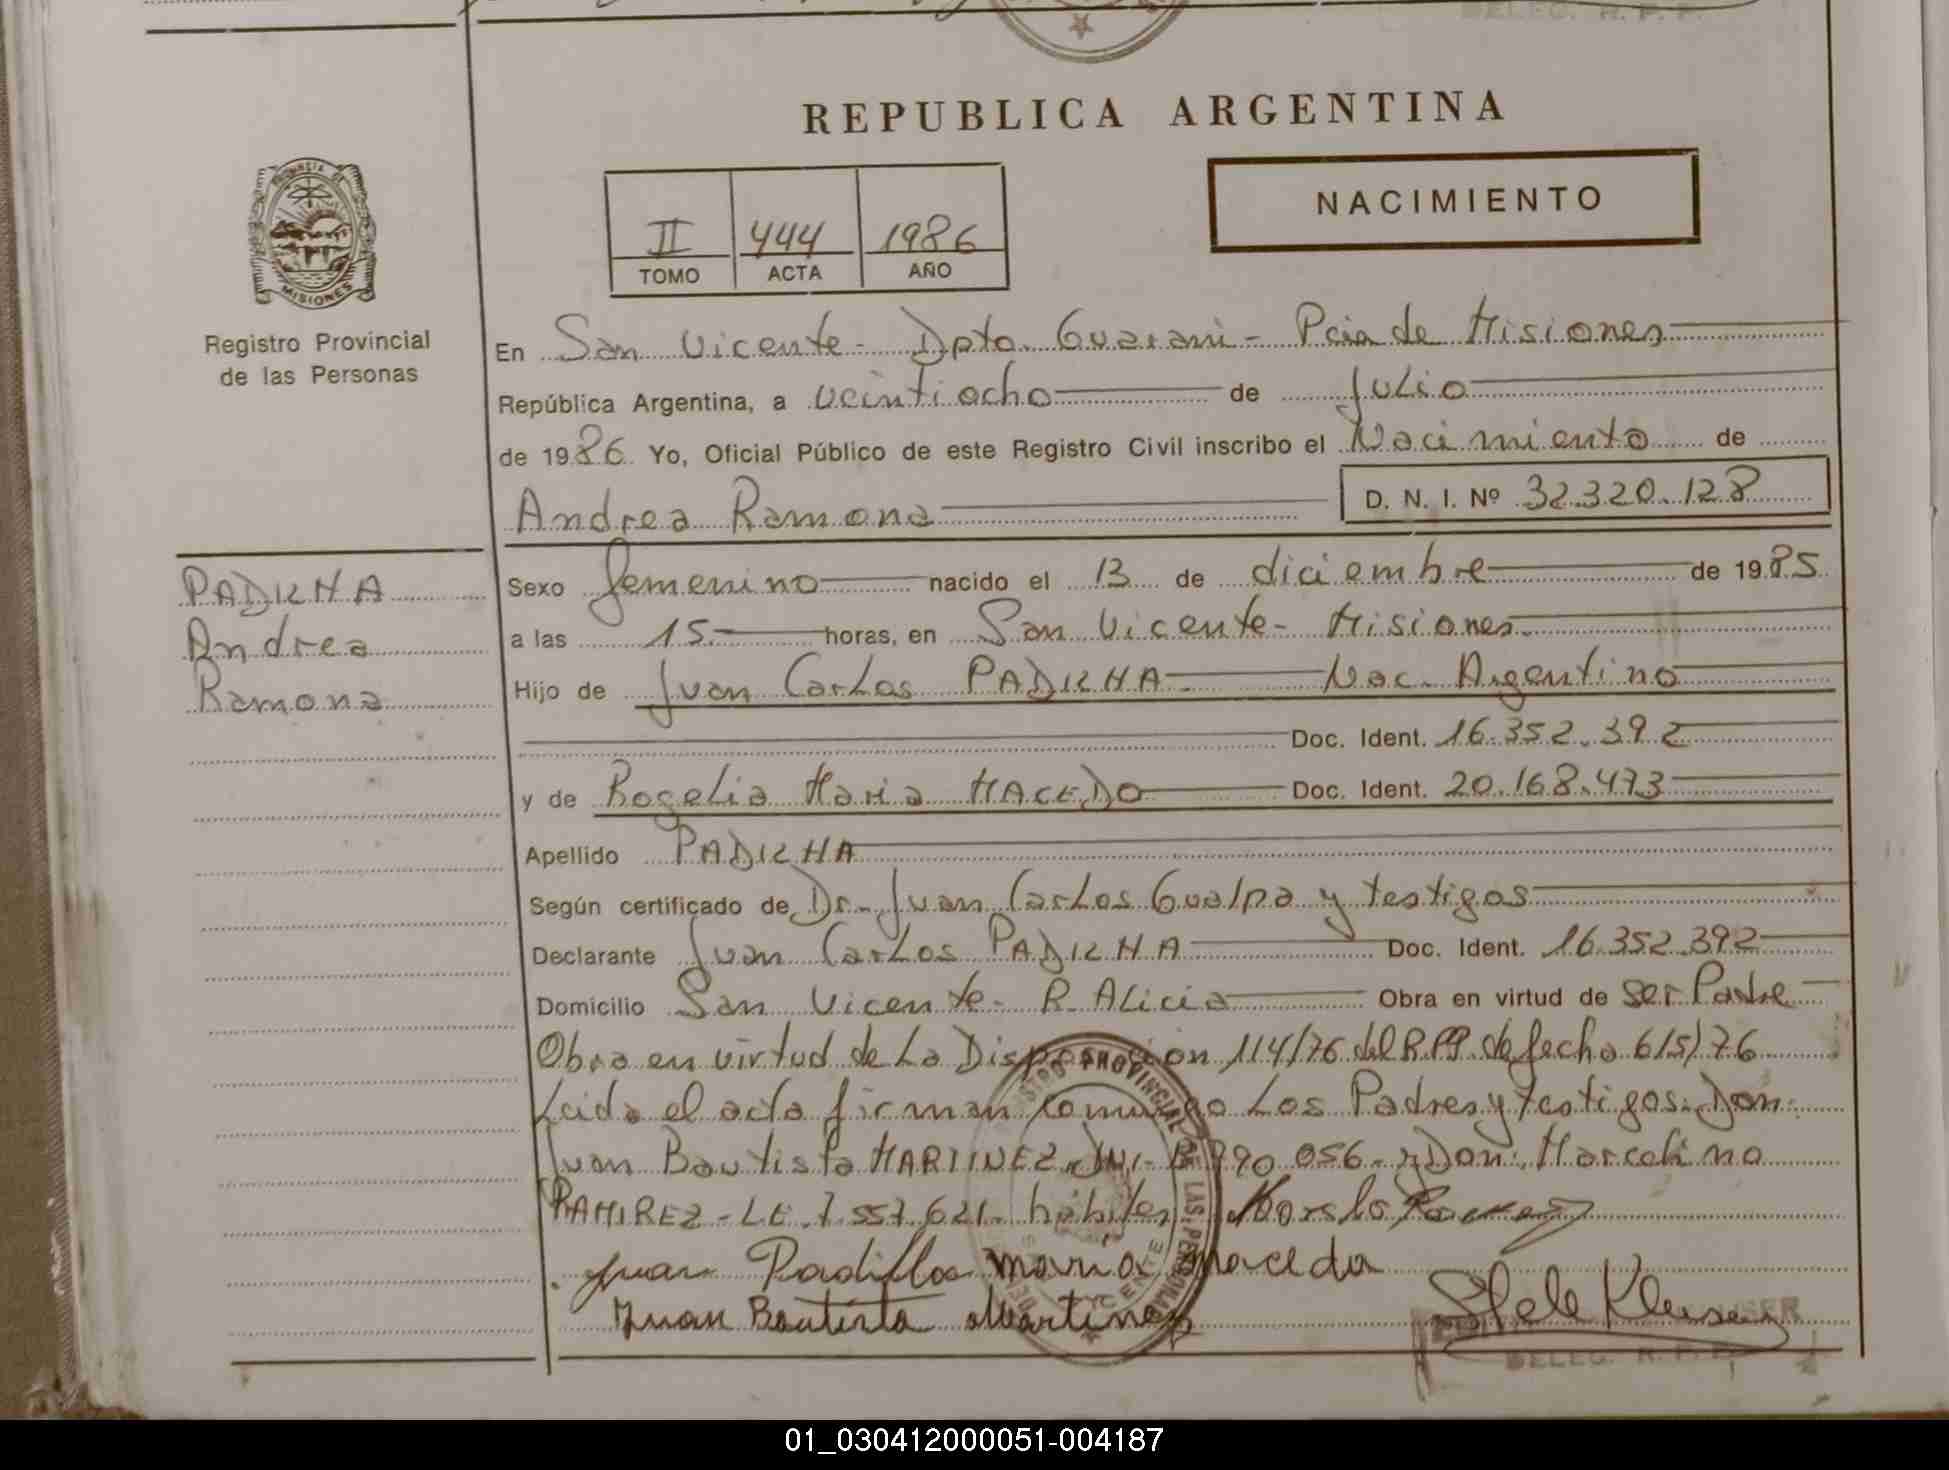 DELEG. R. P. P.
REPUBLICA ARGENTINA
PROVINCIA DE
MISIONES
NACIMIENTO
II 444 1986
TOMO ACTA AÑO
Registro Provincial
de las Personas
En San Vicente - Dpto. Guarani - Pcia de Misiones
República Argentina, a veintiocho de Julio
de 1986. Yo, Oficial Público de este Registro Civil inscribo el Nacimiento de
Andrea Ramona D. N. I. Nº 32.320.128
PADILHA
Andrea
Ramona
Sexo femenino nacido el 13 de diciembre de 1985
a las 15.- horas, en San Vicente - Misiones.
Hijo de Juan Carlos PADILHA.- Nac. Argentino
Doc. Ident. 16.352.392
y de Rogelia Maria MACEDO Doc. Ident. 20.168.473
Apellido PADILHA
Según certificado de Dr. Juan Carlos Gualpa y testigos
Declarante Juan Carlos PADILHA Doc. Ident. 16.352.392
Domicilio San Vicente - R. Alicia Obra en virtud de ser Padre
Obra en virtud de La Disposición 114/76 del R.P.P. de fecha 6/5/76
Leida el acta firman conmigo Los Padres y testigos. Don:
Juan Bautista MARTINEZ DNI- 990.056.- y Don: Marcelino
RAMIREZ - LE. 7.557.621. hábiles
Juan Padilla maria maceda
Juan Bautista Martinez
REGISTRO PROVINCIAL DE LAS PERSONAS
DELEG. R. P. P.
01_030412000051-004187